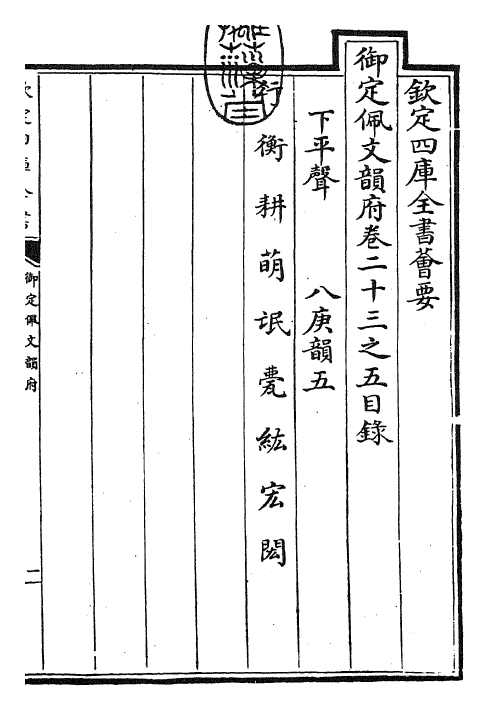 欽定四庫全書薈要
御定佩文韻府卷二十三之五目錄
下平聲 八庚韻五
行 衡 耕 萌 氓 甍 紘 宏 閎
御定佩文韻府
二